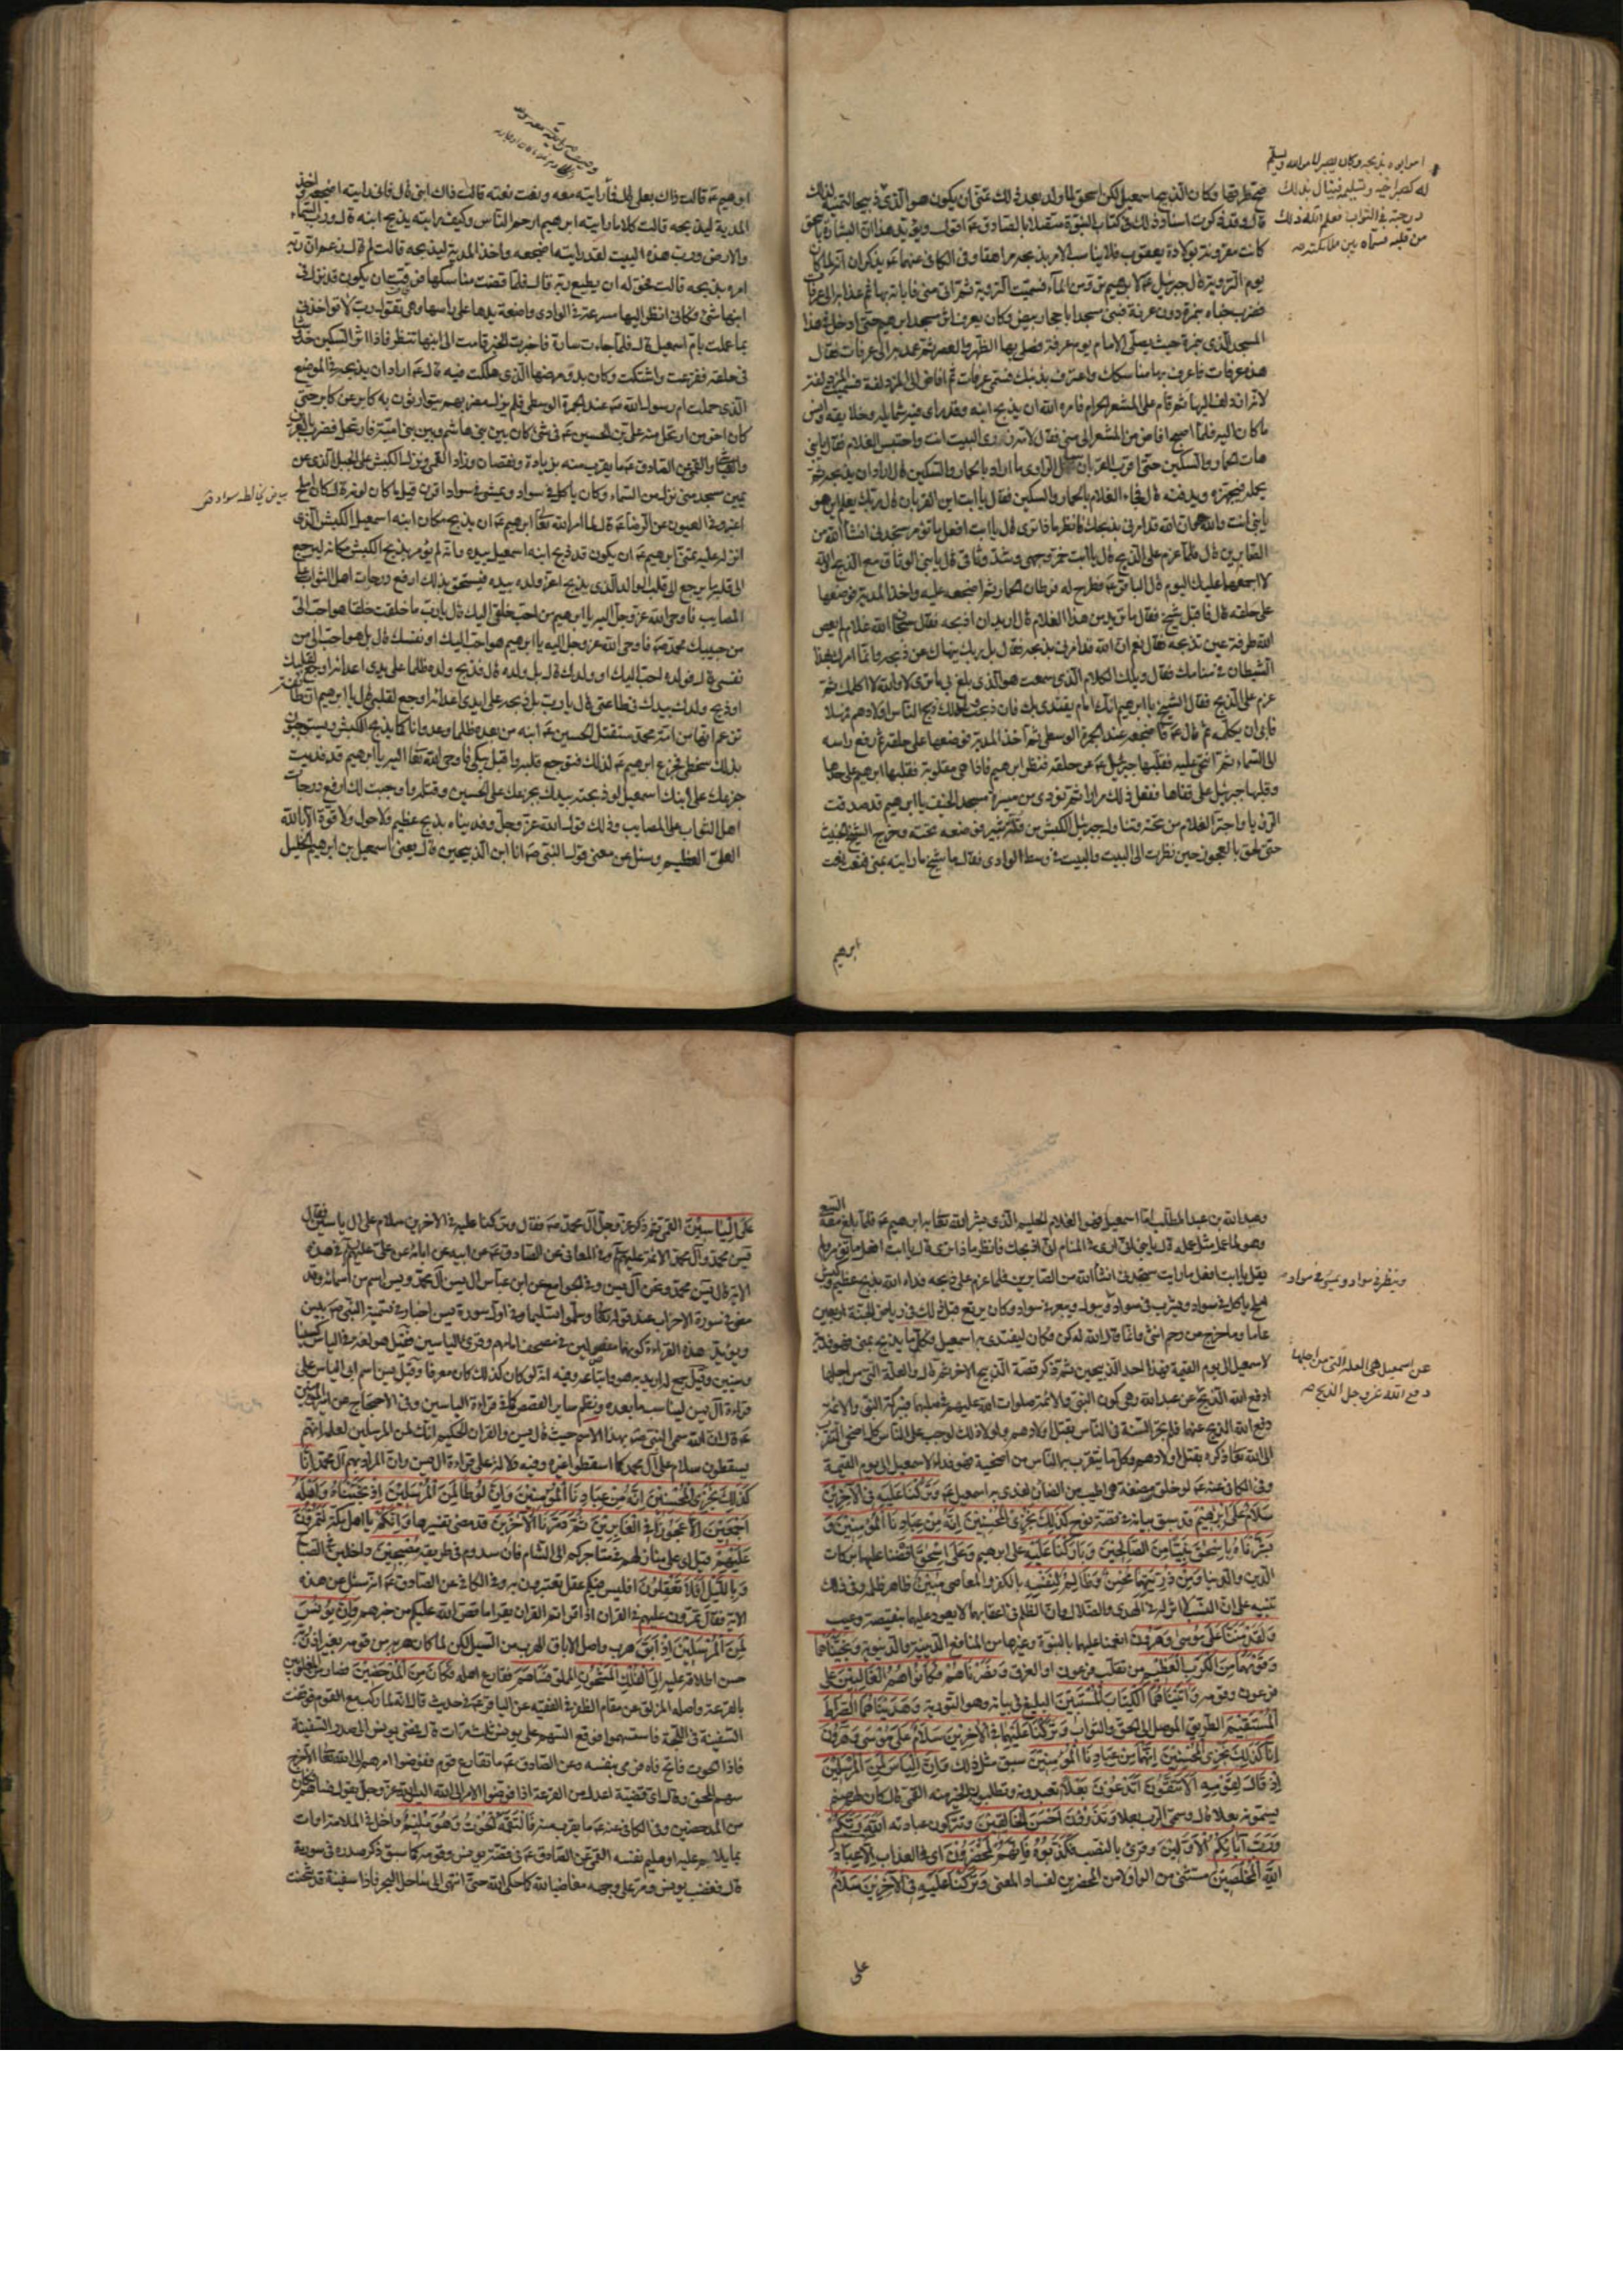 امر ابوه بذبحه وكان يصبر لامر الله ويسلم
له كصبر اخيه وتسليمه فينال بذلك
درجته في الثواب فعلم الله ذلك
من قلبه فسماه بين ملائكته
فحضر بها وكان الذبيح اسمعيل لكن اسحق لما ولد بعد ذلك تمنى ان يكون هو الذي
قال وقد ذكرت اسناد ذلك في كتاب النبوة متصلا بالصادق ع اقول ويؤيد هذا ان البشارة باسحق
كانت مقرونة بولادة يعقوب فلا يناسب الامر بذبحه مراهقا وفي الكافي عنهما ع يذكران انه لما كان
يوم التروية قال جبرئيل ع لابرهيم ع ترو من الماء فسميت التروية ثم اتى منى فاباته بها ثم غدا به الى عرفات
فضرب خباه بنمرة دون عرفة فبنى مسجدا باحجار بيض وكان يعرف اثر مسجد ابرهيم حتى ادخل في هذا
المسجد الذي بنمرة حيث يصلي الامام يوم عرفة فصلى بها الظهر والعصر ثم عمد به الى عرفات فقال
هذه عرفات فاعرف بها مناسكك واعترف بذنبك فسمي عرفات ثم افاض الى المزدلفة فسميت المزدلفة
لانه ازدلف اليها ثم قام على المشعر الحرام فامره الله ان يذبح ابنه وقد راى فيه شمايله وخلايقه وانس
ما كان اليه فلما اصبح افاض من المشعر الى منى فقال لامه زوري البيت انت واحتبس الغلام فقال يا بني
هات الحمار والسكين حتى اقرب القربان سئل الراوي ما اراد بالحمار والسكين قال اراد ان يذبحه ثم
يحمله فيجهزه ويدفنه قال فجاء الغلام بالحمار والسكين فقال يا ابت اين القربان قال ربك يعلم اين هو
يا بني انت والله هو ان الله قد امرني بذبحك فانظر ماذا ترى قال يا ابت افعل ما تؤمر ستجدني انشاء الله من
الصابرين قال فلما عزم على الذبح قال يا ابت خمر وجهي وشد وثاقي قال يا بني الوثاق مع الذبح والله
لا اجمعهما عليك اليوم قال الباقر ع فطرح له قرطان الحمار ثم اضجعه عليه واخذ المدية فوضعها
على حلقه قال فاقبل شيخ فقال ما تريد من هذا الغلام قال اريد ان اذبحه فقال سبحان الله غلام لم يعص
الله طرفة عين تذبحه فقال نعم ان الله قد امرني بذبحه فقال بل ربك ينهاك عن ذبحه وانما امرك بهذا
الشيطان في منامك فقال ويلك الكلام الذي سمعت هو الذي بلغ بي ما ترى لا والله لا اكلمك ثم
عزم على الذبح فقال الشيخ يا ابرهيم انك امام يقتدى بك فان ذبحت ولدك ذبح الناس اولادهم فمهلا
فابى ان يكلمه ثم قال ع فاضجعه عند الجمرة الوسطى ثم اخذ المدية فوضعها على حلقه ثم رفع راسه
الى السماء ثم انتحى عليه فقلبها جبرئيل ع عن حلقه فنظر ابرهيم فاذا هي مقلوبة فقلبها ابرهيم على حدها
وقلبها جبرئيل على قفاها ففعل ذلك مرارا ثم نودي من ميسرة مسجد الخيف يا ابرهيم قد صدقت
الرؤيا واجتر الغلام من تحته وتناول جبرئيل الكبش من قلة ثبير فوضعه تحته وخرج الشيخ الخبيث
حتى لحق بالعجوز حين نظرت الى البيت والبيت في وسط الوادي فقال ما شيخ رايته بمنى فنعت نعت
ابرهيم
ابرهيم ع قالت ذاك بعلي قال فما رايته معه ونعت نعته قالت ذاك ابني قال فاني رايته اضجعه واخذ
المدية ليذبحه قالت كلا ما رايته ابرهيم ارحم الناس وكيف رايته يذبح ابنه قال ورب السماء
والارض ورب هذه البيت لقد رايته اضجعه واخذ المدية ليذبحه قالت لم قال زعم ان ربه
امره بذبحه قالت فحق له ان يطيع ربه قال فلما قضت مناسكها فرقت ان يكون قد نزل في
ابنها شئ فكاني انظر اليها مسرعة في الوادي واضعة يدها على راسها وهي تقول رب لا تواخذني
بما عملت بام اسمعيل قال فلما جاءت سارة فاخبرت الخبر قامت الى ابنها تنظر فاذا اثر السكين خدشا
في حلقه ففزعت واشتكت وكان بدو مرضها الذي هلكت فيه قال ع اراد ان يذبحه في الموضع
الذي حملت ام رسول الله ص عند الجمرة الوسطى فلم يزل مضربهم يتوارثون به كابر عن كابر حتى
كان اخر من ارتحل منه علي بن الحسين ع في شئ كان بين بني هاشم وبين بني امية فارتحل فضرب بالعرين
والعياشي والقمي عن الصادق ع ما يقرب منه بزيادة ونقصان وزاد القمي ونزل الكبش على الجبل الذي عن
يمين مسجد منى نزل من السماء وكان ياكل في سواد ويمشي في سواد اقرن قيل ما كان لونه قال كان املح
اغبر وفي العيون عن الرضا ع قال لما امر الله تعالى ابرهيم ع ان يذبح مكان ابنه اسمعيل الكبش الذي
انزله عليه تمنى ابرهيم ع ان يكون قد ذبح ابنه اسمعيل بيده وانه لم يؤمر بذبح الكبش مكانه ليرجع
الى قلبه ما يرجع الى قلب الوالد الذي يذبح اعز ولده بيده فيستحق بذلك ارفع درجات اهل الثواب على
المصايب فاوحى الله عز وجل اليه يا ابرهيم من احب خلقي اليك قال يا رب ما خلقت خلقا هو احب الي
من حبيبك محمد ص فاوحى الله عز وجل اليه يا ابرهيم هو احب اليك او نفسك قال بل هو احب الي من
نفسي قال فولده احب اليك او ولدك قال بل ولده قال فذبح ولده ظلما على يدي اعدائه اوجع لقلبك
او ذبح ولدك بيدك في طاعتي قال يا رب بل ذبحه على ايدي اعدائه اوجع لقلبي قال يا ابرهيم ان طائفة
تزعم انها من امة محمد ستقتل الحسين ع ابنه من بعده ظلما وعدوانا كما يذبح الكبش ويستوجبون
بذلك سخطي فجزع ابرهيم ع لذلك فتوجع قلبه واقبل يبكي فاوحى الله تعالى اليه يا ابرهيم قد فديت
جزعك على ابنك اسمعيل لو ذبحته بيدك بجزعك على الحسين وقتله واوجبت لك ارفع درجات
اهل الثواب على المصايب وذلك قول الله عز وجل وفديناه بذبح عظيم ولا حول ولا قوة الا بالله
العلي العظيم وسئل عن معنى قول النبي ص انا ابن الذبيحين قال يعني اسمعيل بن ابرهيم الخليل
وعبد الله بن عبد المطلب اما اسمعيل فهو الغلام الحليم الذي بشر الله تعالى به ابرهيم ع فلما بلغ معه السعي
وهو لما عمل مثل عمله قال يا بني اني ارى في المنام اني اذبحك فانظر ماذا ترى قال يا ابت افعل ما تؤمر ولم
يقل يا ابت افعل ما رايت ستجدني انشاء الله من الصابرين فلما عزم على ذبحه فداه الله بذبح عظيم بكبش
املح ياكل في سواد ويشرب في سواد ويبول ويبعر في سواد وكان يرتع قبل ذلك في رياض الجنة اربعين
عاما وما خرج من رحم انثى وانما قال الله له كن فكان ليفتدى به اسمعيل فكل ما يذبح بمنى فهو فدية
لاسمعيل الى يوم القيمة فهذا احد الذبيحين ثم ذكر قصة الذبيح الاخر ثم قال والعلة التي من اجلها
دفع الله الذبح عن عبد الله وهي كون النبي والائمة صلوات الله عليهم في صلبهما فببركة النبي والائمة
دفع الله الذبح عنهما فلم تجر السنة في الناس بقتل اولادهم ولولا ذلك لوجب على الناس كل اضحى التقرب
الى الله تعالى ذكره بقتل اولادهم وكل ما يتقرب به الناس من اضحية فهو فداء لاسمعيل الى يوم القيمة
وفي الكافي عنه ع لو خلق مضغة هي اطيب من الضان لفدى به اسمعيل ع وَتَرَكْنَا عَلَيْهِ فِي الْآخِرِينَ
سَلَامٌ عَلَى إِبْرٰهِيمَ قد سبق بيانه في قصة نوح كَذَلِكَ نَجْزِي الْمُحْسِنِينَ إِنَّهُ مِنْ عِبَادِنَا الْمُؤْمِنِينَ وَ
بَشَّرْنَاهُ بِإِسْحٰقَ نَبِيًّا مِنَ الصَّالِحِينَ وَبَارَكْنَا عَلَيْهِ على ابرهيم وَعَلَى إِسْحٰقَ افضنا عليهما بركات
الدين والدنيا وَمِنْ ذُرِّيَّتِهِمَا مُحْسِنٌ وَظَالِمٌ لِنَفْسِهِ بالكفر والمعاصي مُبِينٌ ظاهر ظلمه وفي ذلك
تنبيه على ان النسب لا اثر له في الهدى والضلال وان الظلم في اعقابهما لا يعود عليهما بنقيصة وعيب
وَلَقَدْ مَنَنَّا عَلَى مُوسَى وَهٰرُونَ انعمنا عليهما بالنبوة وغيرها من المنافع الدينية والدنيوية وَنَجَّيْنَاهُمَا
وَقَوْمَهُمَا مِنَ الْكَرْبِ الْعَظِيمِ من تغلب فرعون او الغرق وَنَصَرْنَاهُمْ فَكَانُوا هُمُ الْغَالِبِينَ على
فرعون وقومه وَآتَيْنَاهُمَا الْكِتَابَ الْمُسْتَبِينَ البليغ في بيانه وهو التورية وَهَدَيْنَاهُمَا الصِّرَاطَ
الْمُسْتَقِيمَ الطريق الموصل الى الحق والثواب وَتَرَكْنَا عَلَيْهِمَا فِي الْآخِرِينَ سَلَامٌ عَلَى مُوسَى وَهٰرُونَ
إِنَّا كَذَلِكَ نَجْزِي الْمُحْسِنِينَ إِنَّهُمَا مِنْ عِبَادِنَا الْمُؤْمِنِينَ سبق مثل ذلك وَإِنَّ إِلْيَاسَ لَمِنَ الْمُرْسَلِينَ
إِذْ قَالَ لِقَوْمِهِ أَلَا تَتَّقُونَ أَتَدْعُونَ بَعْلًا تعبدونه وتطلبون الخير منه القمي قال كان لهم صنم
يسمونه بعلا قال وسمي الرب بعلا وَتَذَرُونَ أَحْسَنَ الْخَالِقِينَ وتتركون عبادته اللَّهَ رَبَّكُمْ
وَرَبَّ آبَائِكُمُ الْأَوَّلِينَ وقرئ بالنصب فَكَذَّبُوهُ فَإِنَّهُمْ لَمُحْضَرُونَ اي في العذاب إِلَّا عِبَادَ
اللَّهِ الْمُخْلَصِينَ مستثنى من الواو لا من المحضرين لفساد المعنى وَتَرَكْنَا عَلَيْهِ فِي الْآخِرِينَ سَلَامٌ
وينظر في سواد ويمشي في سواد
عن اسمعيل هي العلة التي من اجلها
دفع الله عز وجل الذبح
على
عَلَى إِلْيَاسِينَ القمي ثم ذكر عز وجل آل محمد ص فقال وتركنا عليه في الاخرين سلام على ال ياسين فقال
يس محمد وآل محمد الائمة عليهم السلام وفي المعاني عن الصادق ع عن ابيه عن ابائه عن علي عليهم السلام في هذه
الاية قال يس محمد ونحن آل يس وفي الجوامع عن ابن عباس ال يس آل محمد ويس اسم من اسمائه وقد
مضى في سورة الاحزاب عند قوله تعالى وسلموا تسليما وفي اول سورة يس اخبار في تسمية النبي ص بيس
ويؤيد هذه القراءة كونهما مفصولين في مصحف امامهم وقرئ الياسين فقيل هو لغة في الياس كسينا
وسينين وقيل جمع له اريد به هو واتباعه وفيه انه لو كان كذلك كان معرفا وقيل يس اسم ابي الياس على
قراءة آل يس ليناسب ما بعده ونظم ساير القصص كما في قراءة الياسين وفي الاحتجاج عن امير المؤمنين
ع قال ان الله سمى النبي ص بهذا الاسم حيث قال يس والقران الحكيم انك لمن المرسلين لعلمه انهم
يسقطون سلام على آل محمد كما اسقطوا غيره وفيه دلالة على قراءة ال يس وان المراد بهم آل محمد إِنَّا
كَذَلِكَ نَجْزِي الْمُحْسِنِينَ إِنَّهُ مِنْ عِبَادِنَا الْمُؤْمِنِينَ وَإِنَّ لُوطًا لَمِنَ الْمُرْسَلِينَ إِذْ نَجَّيْنَاهُ وَأَهْلَهُ
أَجْمَعِينَ إِلَّا عَجُوزًا فِي الْغَابِرِينَ ثُمَّ دَمَّرْنَا الْآخَرِينَ قد مضى تفسيرها وَإِنَّكُمْ يا اهل مكة لَتَمُرُّونَ
عَلَيْهِمْ قيل اي على منازلهم في متاجركم الى الشام فان سدوم في طريقه مُصْبِحِينَ داخلين في الصباح
وَبِاللَّيْلِ أَفَلَا تَعْقِلُونَ افليس فيكم عقل تعتبرون به وفي الكافي عن الصادق ع انه سئل عن هذه
الاية فقال تمرون عليهم في القران اذا قراتم القران يقرا ما قص الله عليكم من خبرهم وَإِنَّ يُونُسَ
لَمِنَ الْمُرْسَلِينَ إِذْ أَبَقَ هرب واصل الاباق الهرب من السيد لكن لما كان هربه من قومه بغير اذن ربه
حسن اطلاقه عليه إِلَى الْفُلْكِ الْمَشْحُونِ المملو فَسَاهَمَ فقارع اهله فَكَانَ مِنَ الْمُدْحَضِينَ فصار من المغلوبين
بالقرعة واصله المزلق عن مقام الظفر في الفقيه عن الباقر ع في حديث قال انه لما ركب مع القوم فوقفت
السفينة في اللجة فاستهموا فوقع السهم على يونس ثلث مرات قال فمضى يونس الى صدر السفينة
فاذا الحوت فاتح فاه فرمى بنفسه وعن الصادق ع ما تقارع قوم ففوضوا امرهم الى الله تعالى الا خرج
سهم المحق وقال اي قضية اعدل من القرعة اذا فوضوا الامر الى الله اليس الله عز وجل يقول فساهم فكان
من المدحضين وفي الكافي عنه ع ما يقرب منه فَالْتَقَمَهُ الْحُوتُ وَهُوَ مُلِيمٌ داخل في الملامة او ات
بما يلام عليه او مليم نفسه القمي عن الصادق ع في قصة يونس وقومه كما سبق ذكر صدره في سورته
قال فغضب يونس ومر على وجهه مغاضبا لله كما حكى الله حتى انتهى الى ساحل البحر فاذا سفينة قد شحنت